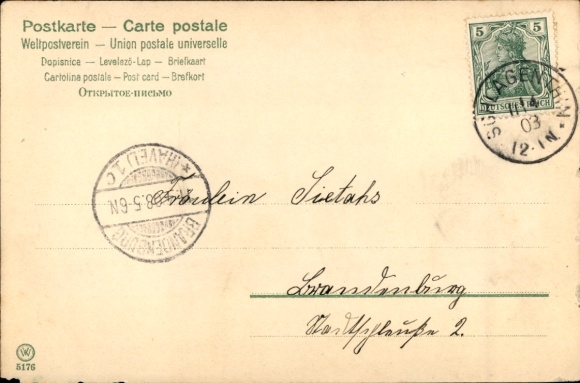 Postkarte — Carte postale
Weltpostverein — Union postale universelle
Dopisnice — Levelező-Lap — Briefkaart
Cartolina postale — Post card — Brefkort
Открытое-письмо
5 5
DEUTSCHES REICH
SCHLAGENTHIN
03
12-1N
BRANDENBURG
* (HAVEL) 1 c
8.5-6N
Fräulein Sietahs
Brandenburg
Stadtschleuße 2.
5176